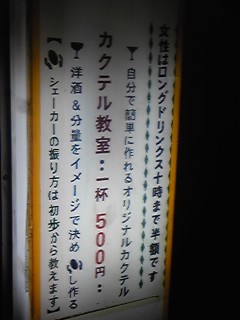 女性はロングドリンクス十時まで半額です
自分で簡単に作れるオリジナルカクテル
カクテル教室：一杯 500円：
洋酒&分量をイメージで決め し作る
【 シェーカーの振り方は初歩から教えます】